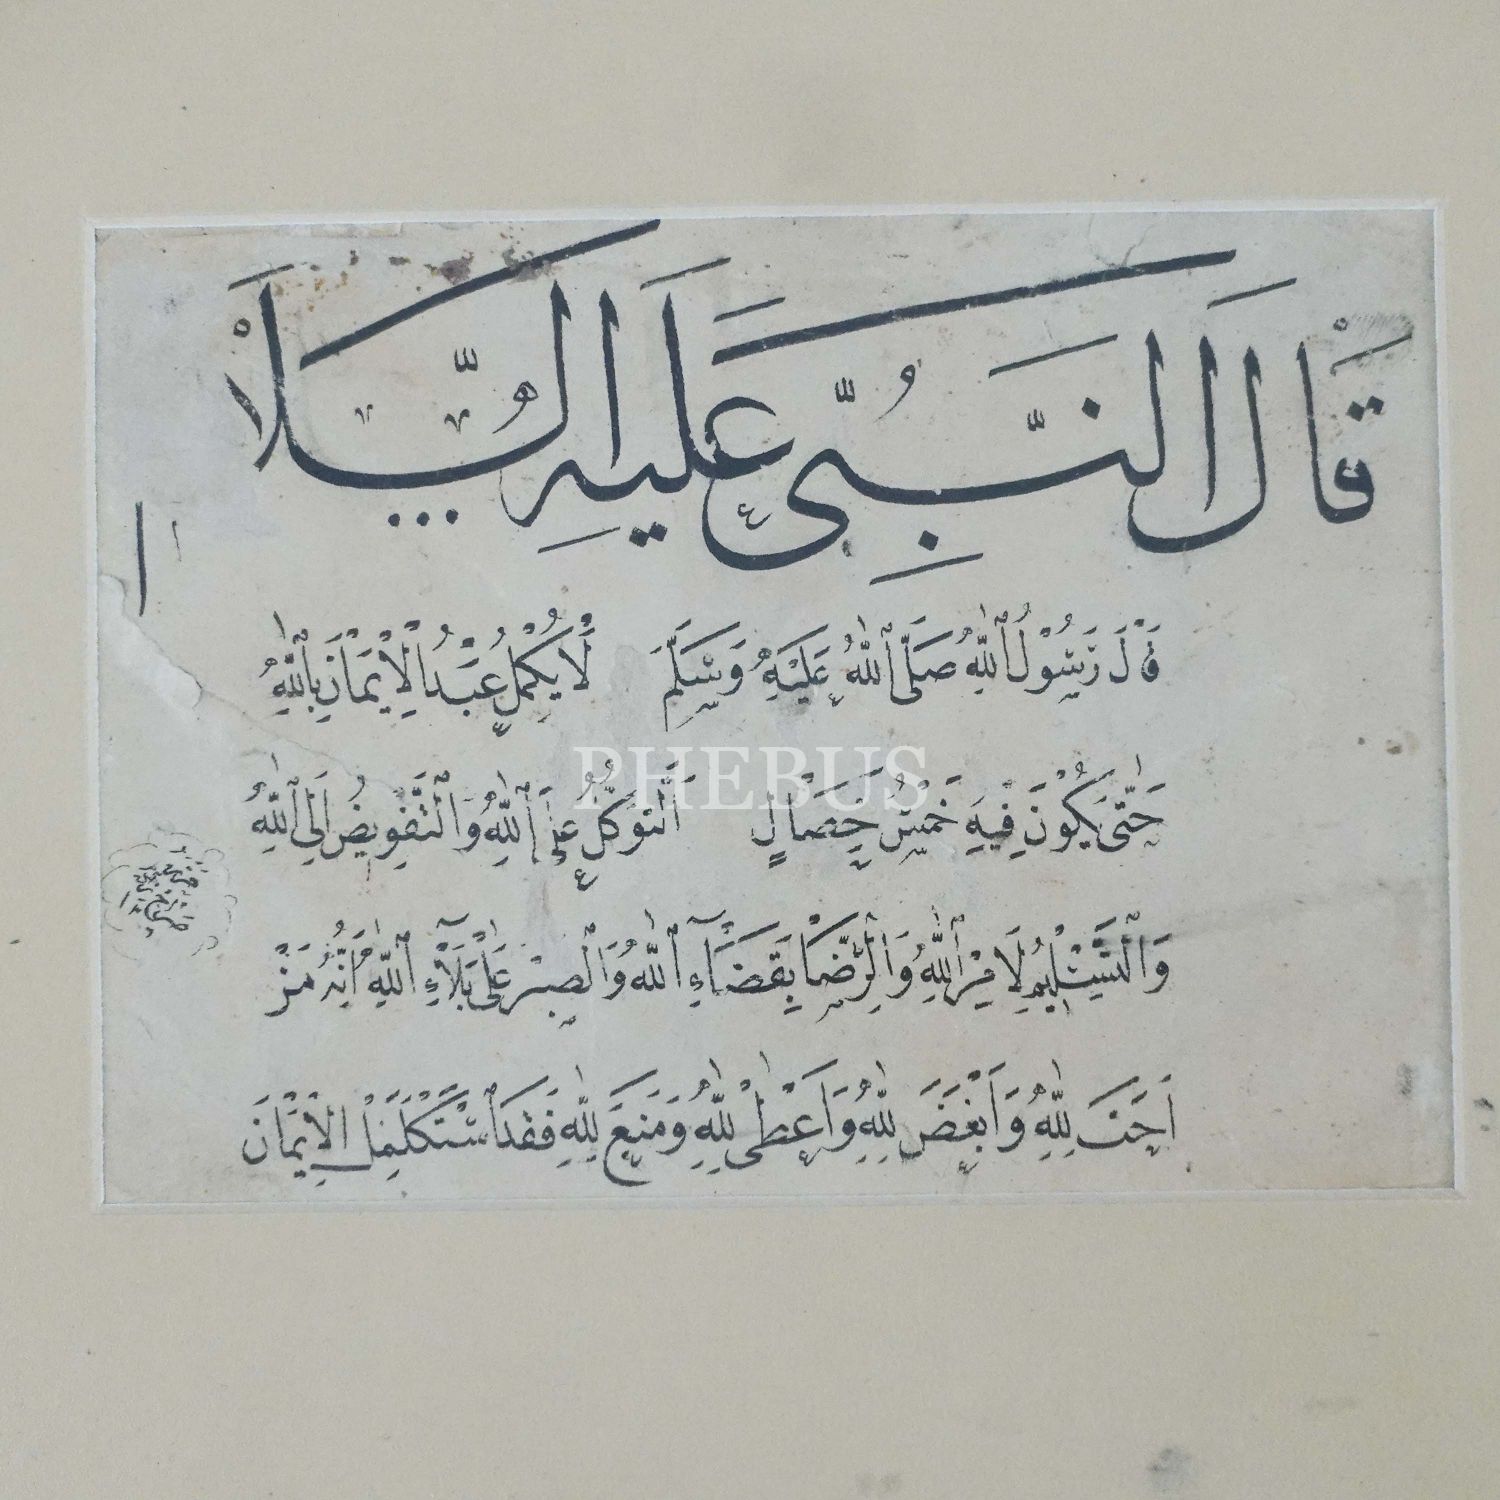 قَالَ النَّبِيُّ عَلَيْهِ السَّلَا
قَالَ رَسُولُ اللهِ صَلَّى اللهُ عَلَيْهِ وَسَلَّمَ لَا يُكْمِلُ عَبْدُ الْإِيمَانَ بِاللهِ
PHEBUS
حَتَّى يَكُونَ فِيهِ خَمْسُ خِصَالٍ اَلتَّوَكُّلُ عَلَى اللهِ وَالتَّفْوِيضُ اِلَى اللهِ
وَالتَّسْلِيمُ لِاَمْرِ اللهِ وَالرِّضَا بِقَضَآءِ اللهِ وَالصَّبْرُ عَلَى بَلَآءِ اللهِ اَنَّهُ مَنْ
اَحَبَّ لِلّٰهِ وَاَبْغَضَ لِلّٰهِ وَاَعْطٰى لِلّٰهِ وَمَنَعَ لِلّٰهِ فَقَدِ اسْتَكْمَلَ الْإِيمَانَ